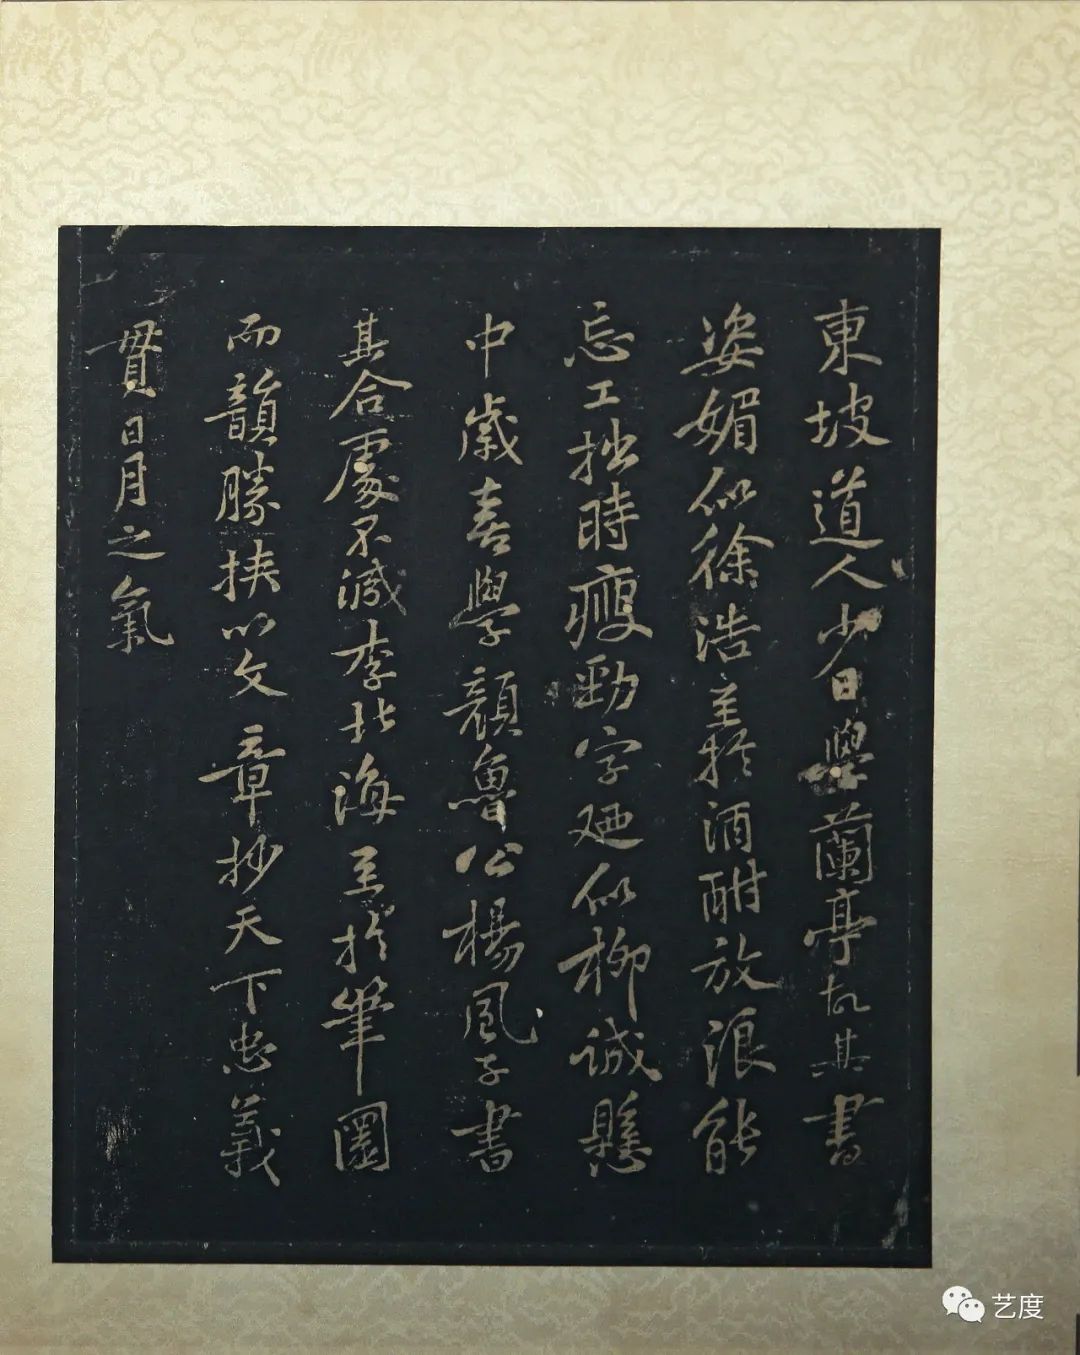 東坡道人少日學蘭亭故其書
姿媚似徐浩至於酒酣放浪能
忘工拙時瘦勁字廼似柳誠懸
中歲喜學顏魯公楊風子書
其合處不減李北海至於筆圜
而韻勝挾以文章抄天下忠義
貫日月之氣
艺度